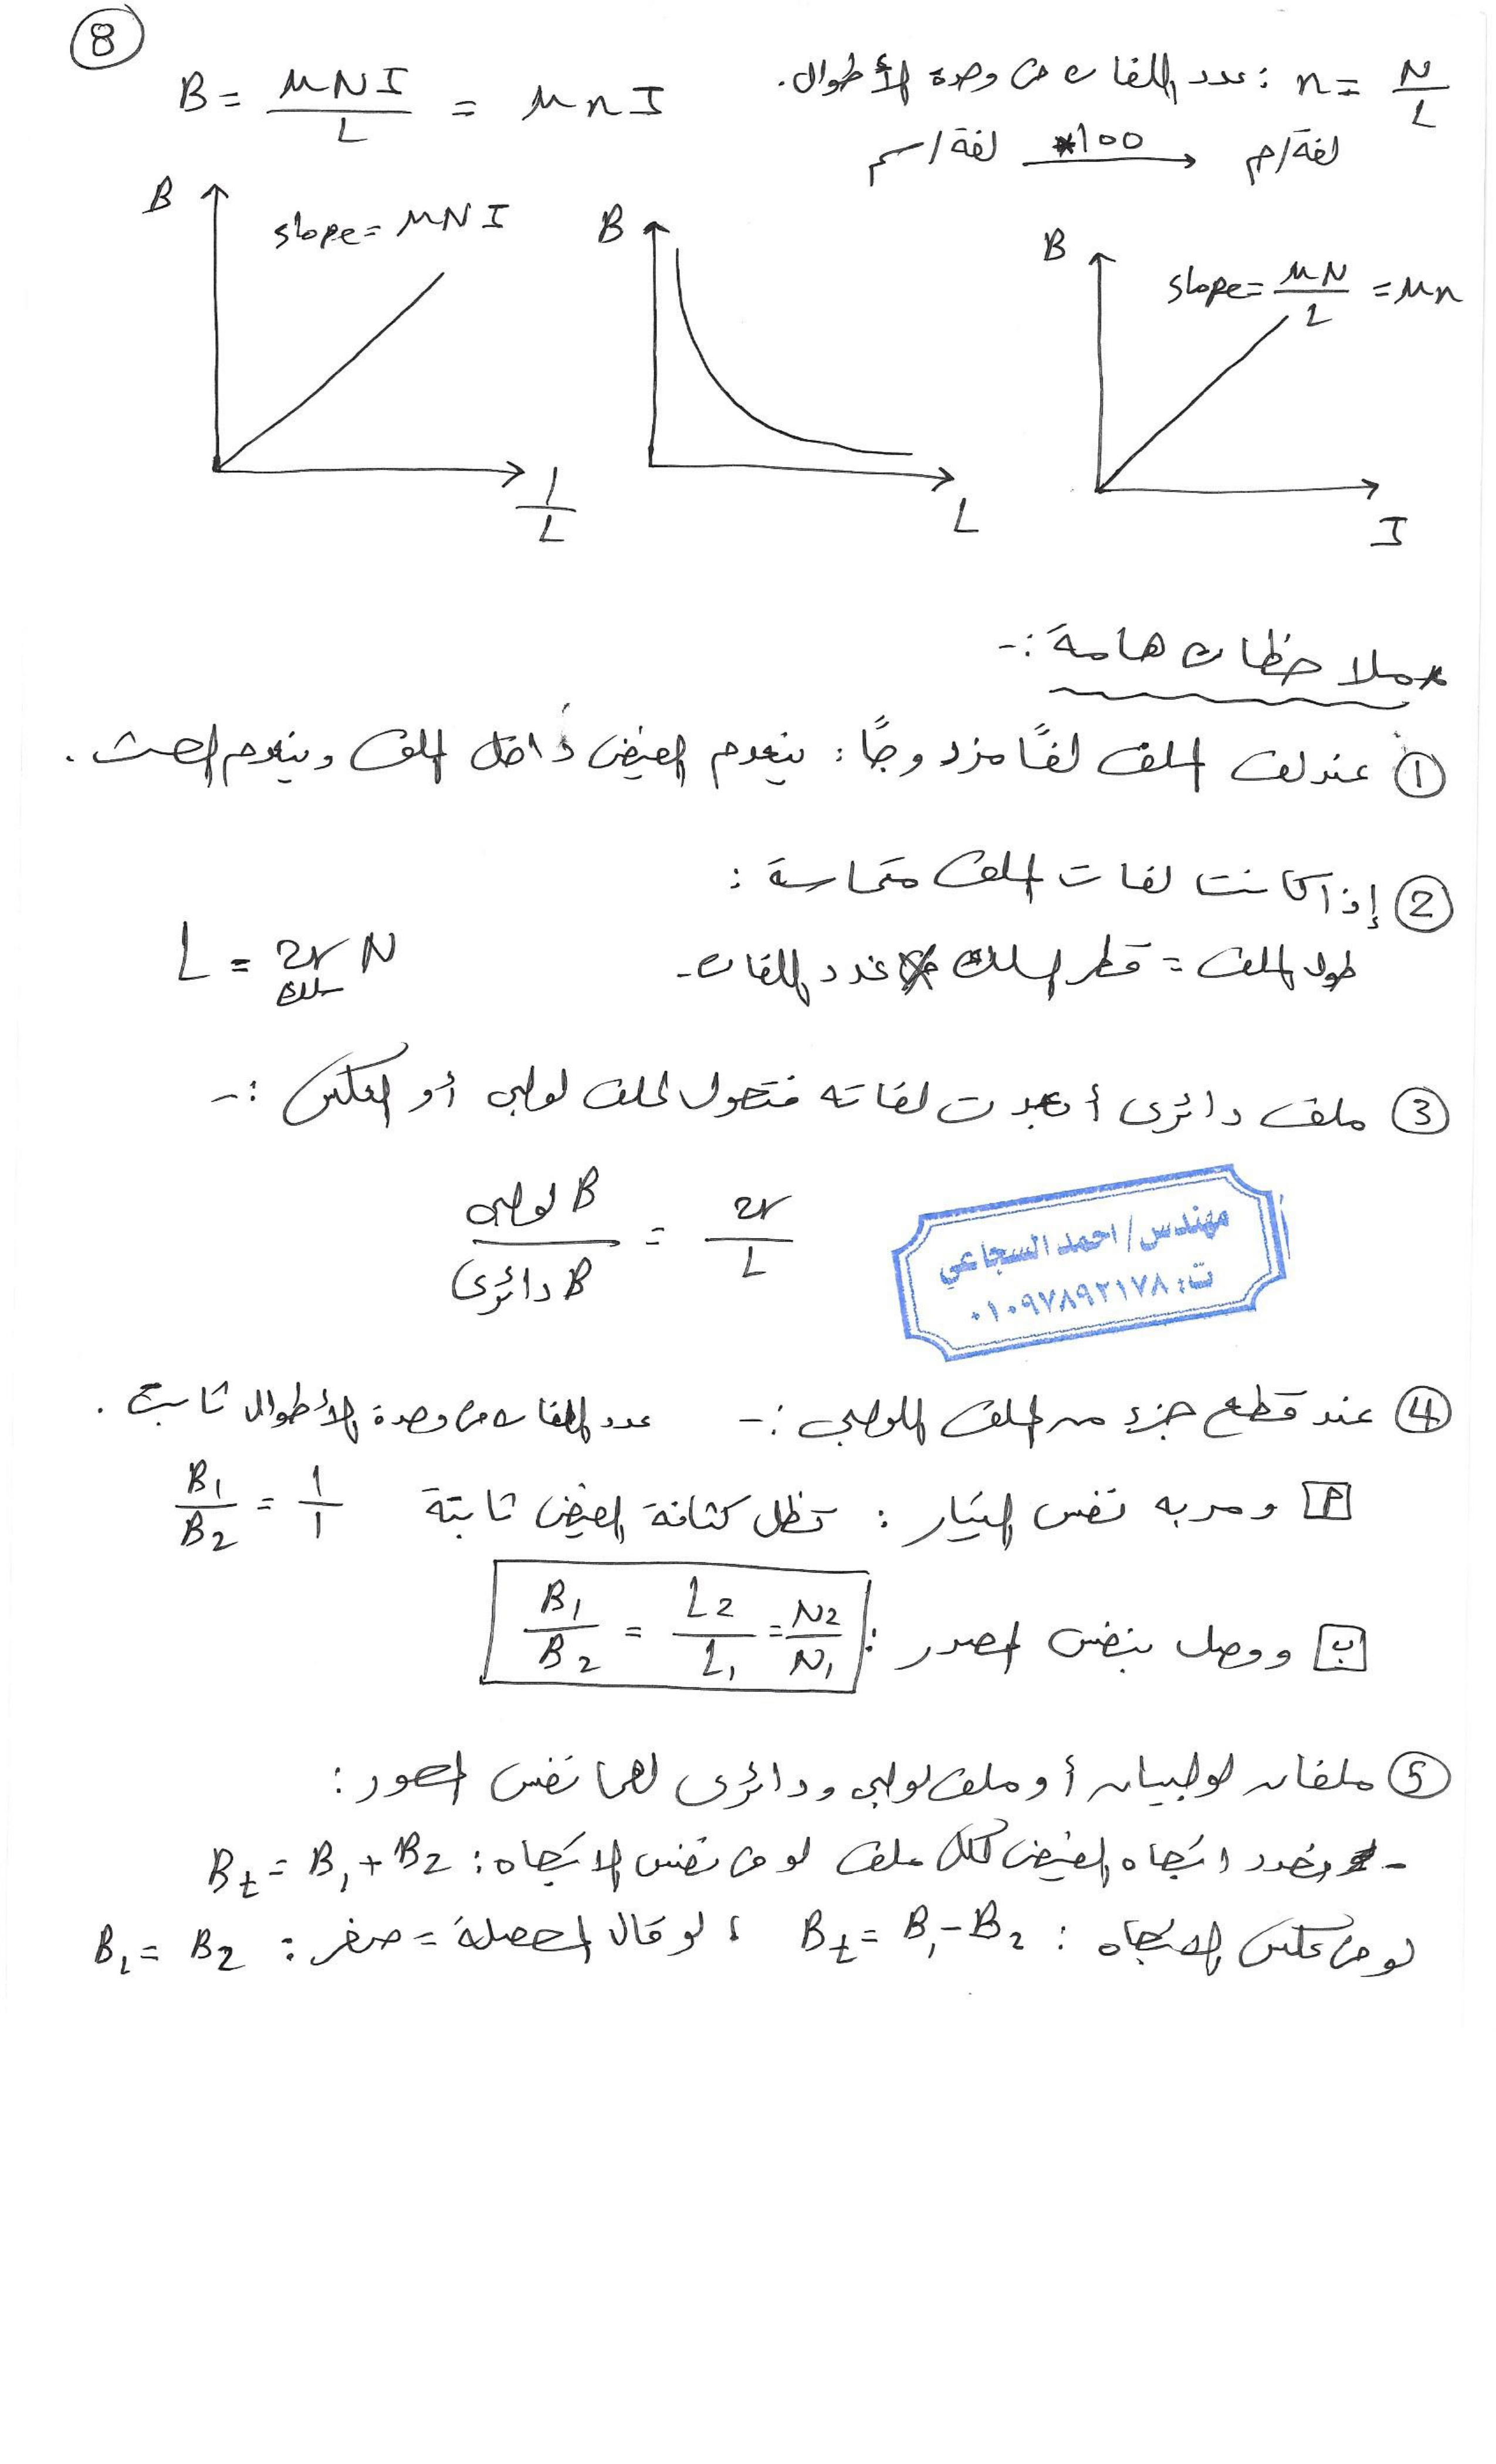 8
n = N/L : عدد اللفات فى وحدة الأطوال.
B = μNI/L = μnI
لفة/سم *100 → لفة/م
B
slope = μNI
1/L
B
L
B
slope = μN/L = μn
I
* ملاحظات هامة :-
① عند لف الملف لفًا مزدوجًا : ينعدم الفيض داخل الملف وينعدم الحث.
② إذا كانت لفات الملف متماسة :
طول الملف = قطر السلك × عدد اللفات - L = 2r سلك N
③ ملف دائرى أبعدت لفاته فتحول لملف لولبى أو العكس :-
B لولبى / B دائرى = 2r/L
مهندس/ احمد السجاعي
ت: ٠١٠٩٧٨٩٢١٧٨
④ عند قطع جزء من الملف اللولبى :- عدد اللفات فى وحدة الأطوال ثابت.
أ ومر به نفس التيار : تظل كثافة الفيض ثابتة B1/B2 = 1/1
ب ووصل بنفس المصدر : B1/B2 = L2/L1 = N2/N1
⑤ ملفان لولبيان أو ملف لولبى ودائرى لهما نفس المحور :
- نحدد اتجاه الفيض لكل ملف لو فى نفس الاتجاه : Bt = B1 + B2
لو فى عكس الاتجاه : Bt = B1 - B2 ، لو قال المحصلة = صفر : B1 = B2